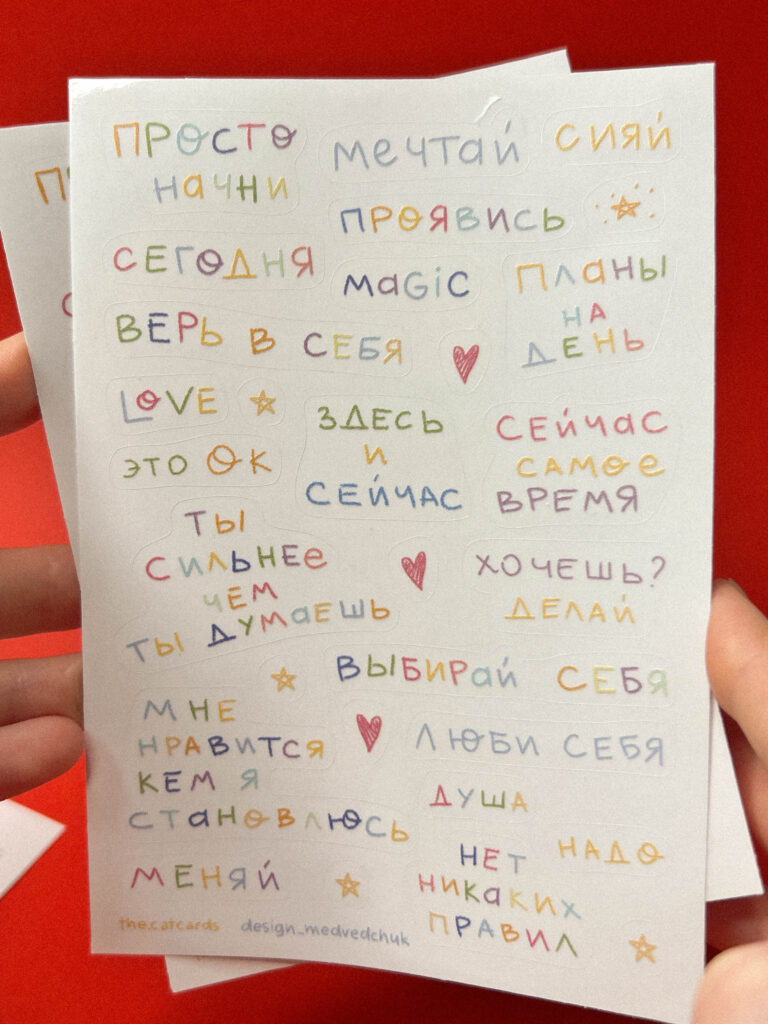 ПРОСТО
НАЧНИ
мечтай
СИЯЙ
ПРОЯВИСЬ
СЕГОДНЯ
MAGIC
ПЛАНЫ
НА
ДЕНЬ
ВЕРЬ В СЕБЯ
LOVE
ЗДЕСЬ
И
СЕЙЧАС
СЕЙЧАС
САМОЕ
ВРЕМЯ
ЭТО ОК
ТЫ
СИЛЬНЕЕ
ЧЕМ
ТЫ ДУМАЕШЬ
ХОЧЕШЬ?
ДЕЛАЙ
ВЫБИРАЙ СЕБЯ
МНЕ
НРАВИТСЯ
КЕМ Я
СТАНОВЛЮСЬ
ЛЮБИ СЕБЯ
ДУША
НАДО
МЕНЯЙ
НЕТ
НИКАКИХ
ПРАВИЛ
the.catcards design_medvedchuk